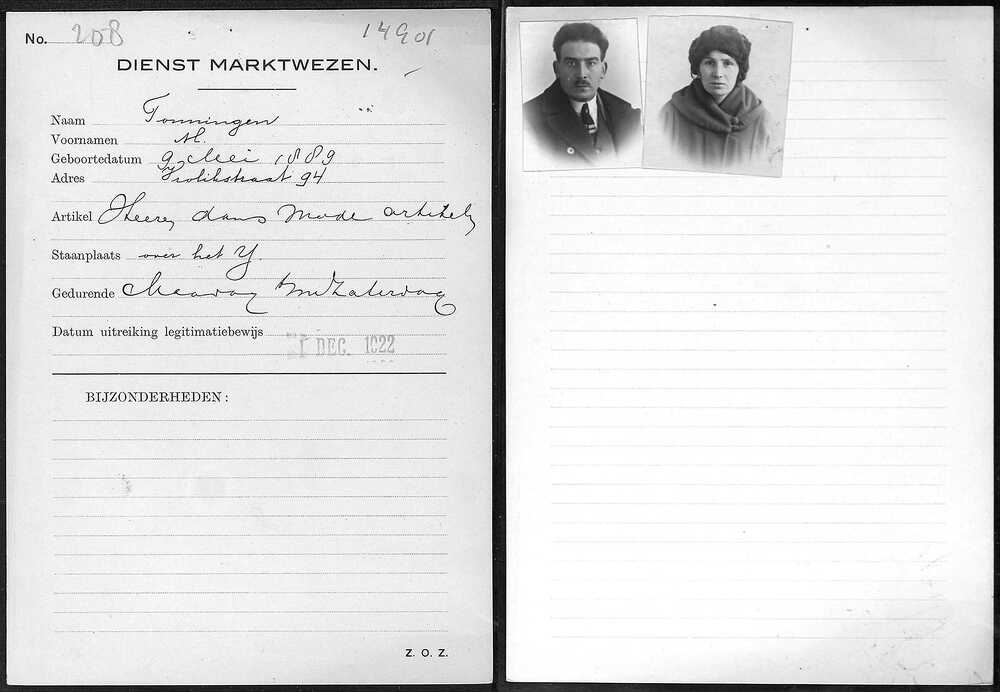 No. 208
DIENST MARKTWEZEN.
Naam Tonningen
Voornamen M.
Geboortedatum 9 Mei 1889
Adres Vrolikstraat 94
Artikel Heere, dams Mode artikelen
Staanplaats over het Y.
Gedurende Maandag t/m Zaterdag
Datum uitreiking legitimatiebewijs
DEC. 1922
BIJZONDERHEDEN:
Z. O. Z.